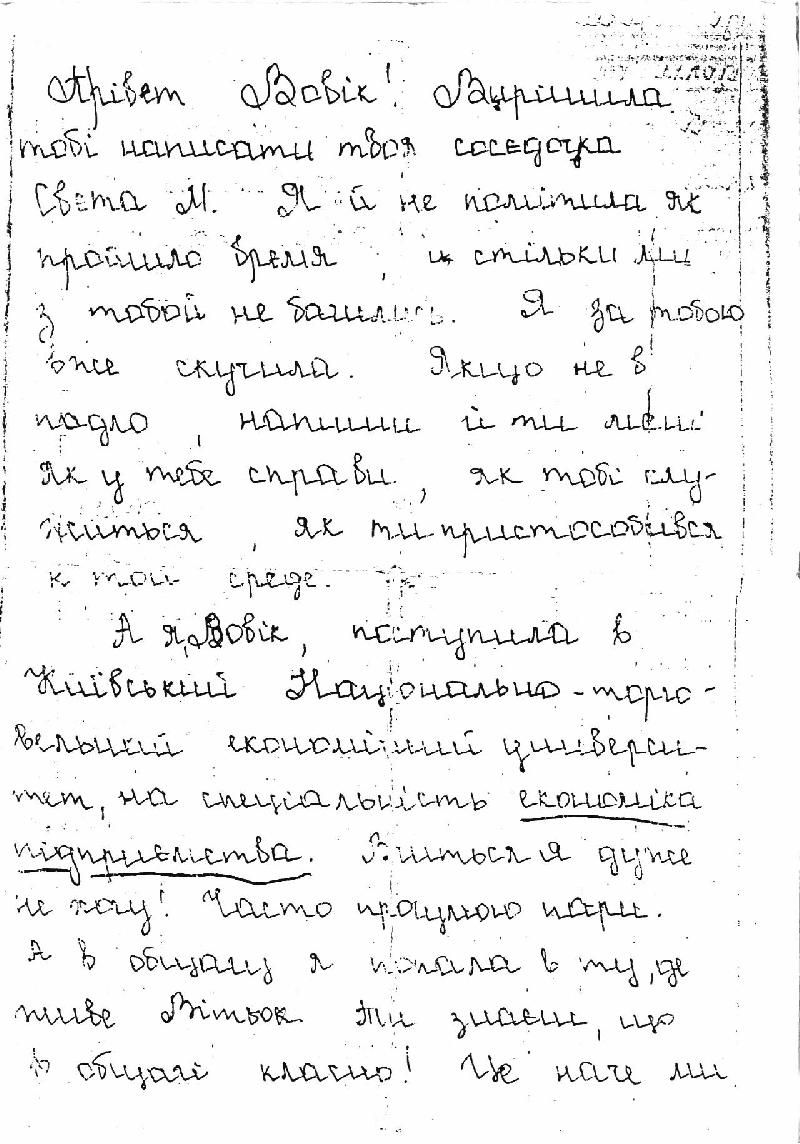 Прівет Вовік! Вирішила
тобі написати твоя соседочка
Света М. Я й не помітила як
пройшло время, и стільки ми
з тобой не бачились. Я за тобою
вже скучила. Якщо не в
падло, напиши й ти мені
як у тебе справи, як тобі слу-
житься, як ти пристособився
к той среде.
А я, Вовік, поступила в
Київський Національно-торго-
вельний економічний универси-
тет, на спеціальність економіка
підприємства. Вчиться я дуже
не хочу! Часто прогулюю пари.
А в общагу я попала в ту, де
живе Вітьок. Ти знаєш, що
в общагі класно! Це наче ми